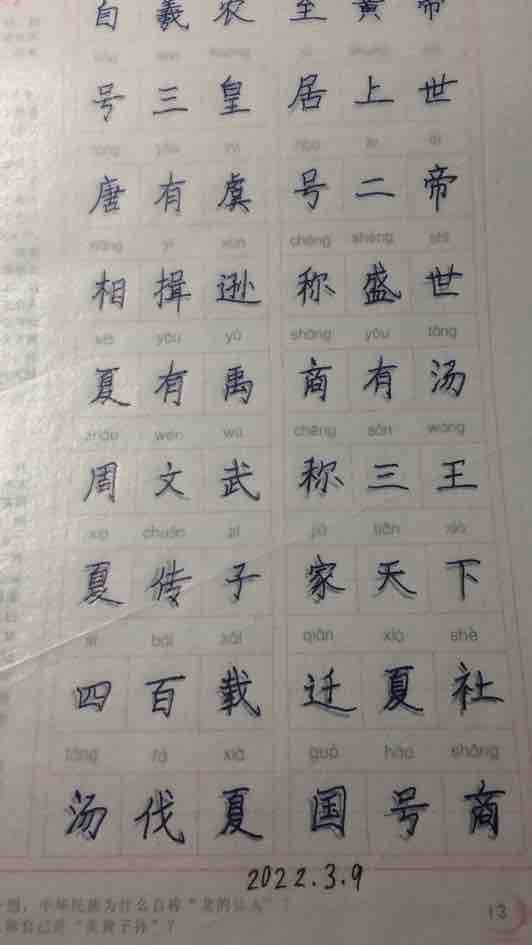 自羲农 至黄帝
号三皇 居上世
táng yǒu yú hào èr dì
唐有虞 号二帝
xiāng yī xùn chēng shèng shì
相揖逊 称盛世
xià yǒu yǔ shāng yǒu tāng
夏有禹 商有汤
zhōu wén wǔ chēng sān wáng
周文武 称三王
xià chuán zǐ jiā tiān xià
夏传子 家天下
sì bǎi zǎi qiān xià shè
四百载 迁夏社
tāng fá xià guó hào shāng
汤伐夏 国号商
2022.3.9
想,中华民族为什么自称"龙的传人"?
称自己是"炎黄子孙"?
13